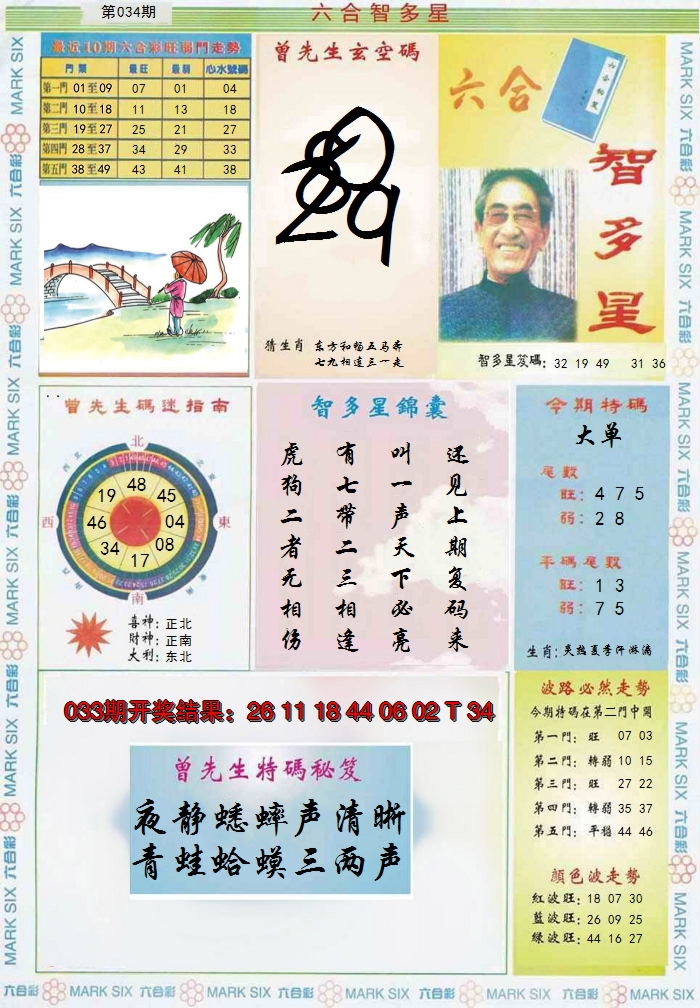 第034期
六合智多星
最近10期六合彩旺弱門走勢
門票 最旺 最弱 心水號碼
第一門 01至09 07 01 04
第二門 10至18 11 13 18
第三門 19至27 25 21 27
第四門 28至37 34 29 33
第五門 38至49 43 41 38
曾先生玄空碼
猜生肖 东方和畅五马奔
七九相连三一走
六合
智多星
智多星笈碼: 32 19 49 31 36
曾先生碼迷指南
北
東
南
西
48
45
04
08
17
34
46
19
喜神: 正北
財神: 正南
大利: 东北
智多星錦囊
还见上期复码来
叫一声天下必亮
有七带二三相逢
虎狗二者无相伤
今期特碼
大单
尾數
旺: 4 7 5
弱: 2 8
平碼尾數
旺: 1 3
弱: 7 5
生肖: 炎热夏季汗淋漓
033期开奖结果：26 11 18 44 06 02 T 34
曾先生特碼秘笈
夜静蟋蟀声清晰
青蛙蛤蟆三两声
波路必然走勢
今期特碼在第二門中開
第一門: 旺 07 03
第二門: 轉弱 10 15
第三門: 旺 27 22
第四門: 轉弱 35 37
第五門: 平穩 44 46
顏色波走勢
紅波旺: 18 07 30
藍波旺: 26 09 25
綠波旺: 44 16 27
六合彩 MARK SIX 六合彩 MARK SIX 六合彩 MARK SIX 六合彩 MARK SIX 六合彩